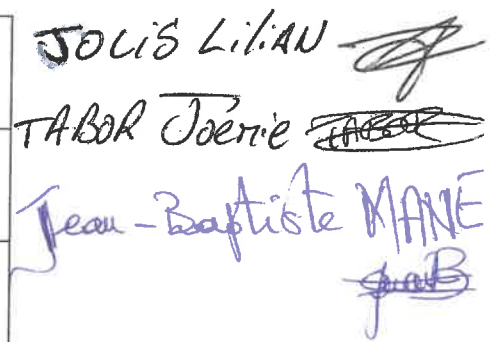 JOLIS LiLiAN
TABOR Joëmie TABOR
Jean-Baptiste MANE